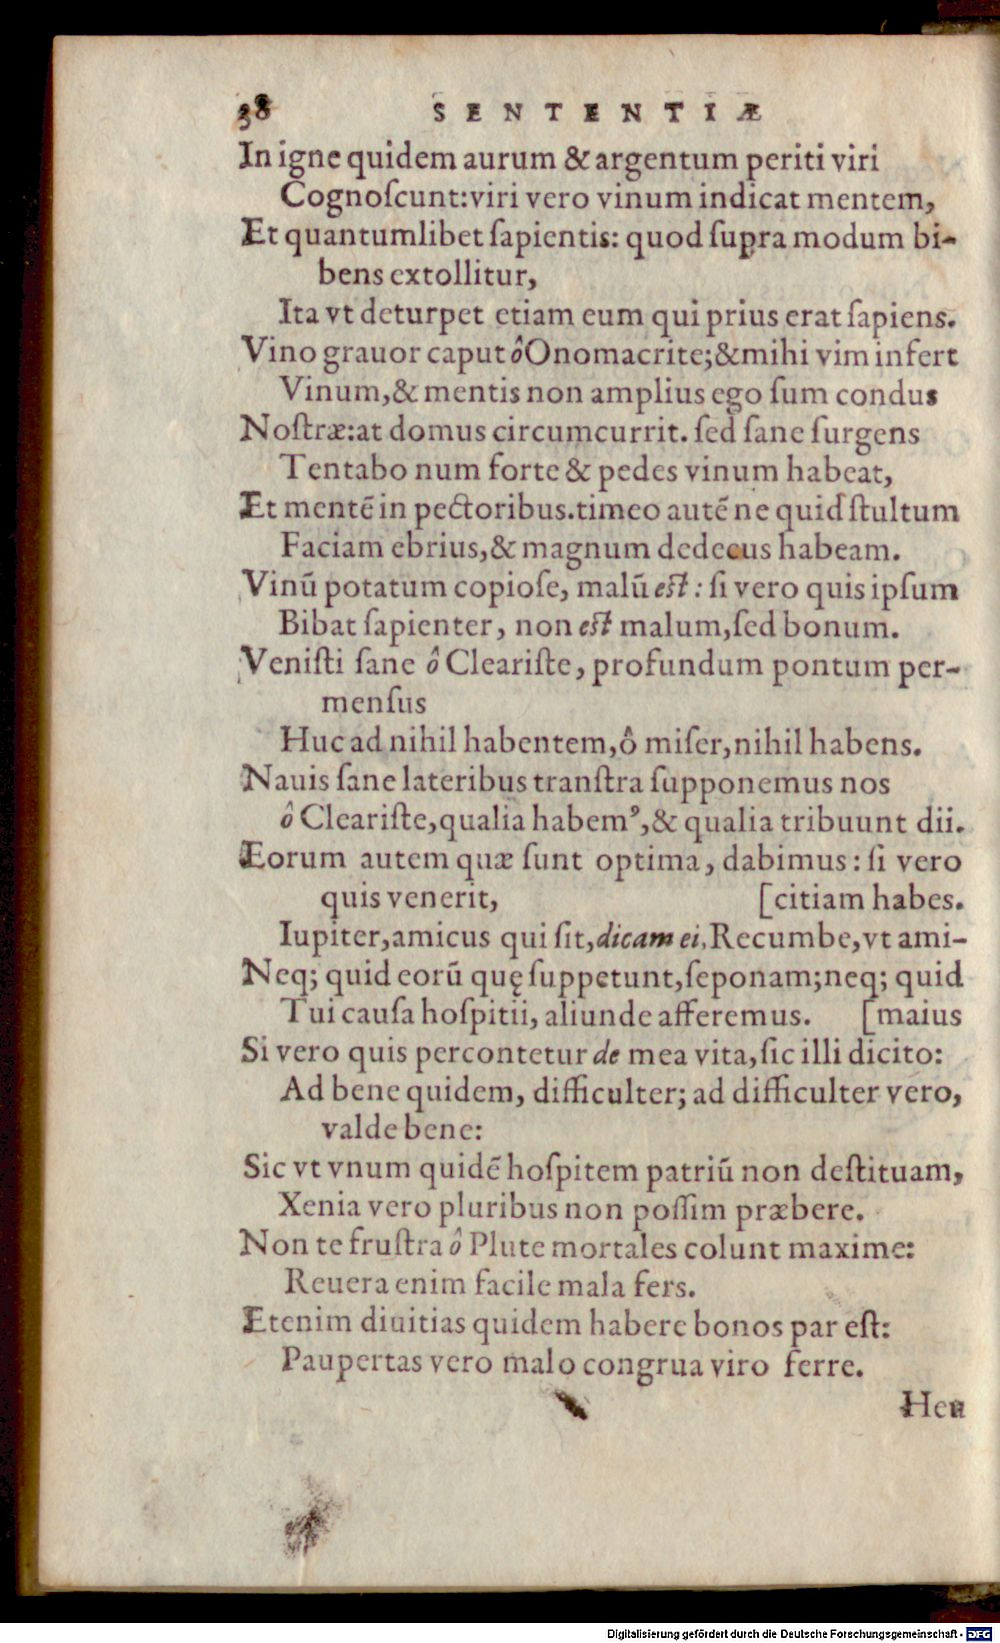 38 SENTENTIÆ
In igne quidem aurum & argentum periti viri
Cognoſcunt:viri vero vinum indicat mentem,
Et quantumlibet ſapientis: quod ſupra modum bi-
bens extollitur,
Ita vt deturpet etiam eum qui prius erat ſapiens.
Vino grauor caput ô Onomacrite;& mihi vim infert
Vinum,& mentis non amplius ego ſum condus
Noſtræ:at domus circumcurrit. ſed ſane ſurgens
Tentabo num forte & pedes vinum habeat,
Et mentē in pectoribus.timeo autē ne quid ſtultum
Faciam ebrius,& magnum dedecus habeam.
Vinū potatum copioſe, malū eſt : ſi vero quis ipſum
Bibat ſapienter, non eſt malum,ſed bonum.
Veniſti ſane ô Cleariſte, profundum pontum per-
menſus
Huc ad nihil habentem,ô miſer,nihil habens.
Nauis ſane lateribus tranſtra ſupponemus nos
ô Cleariſte,qualia habemꝰ,& qualia tribuunt dii.
Eorum autem quæ ſunt optima, dabimus: ſi vero
quis venerit, [citiam habes.
Iupiter,amicus qui ſit,dicam ei,Recumbe,vt ami-
Neq; quid eorū quę ſuppetunt,ſeponam;neq; quid
Tui cauſa hoſpitii, aliunde afferemus. [maius
Si vero quis percontetur de mea vita,ſic illi dicito:
Ad bene quidem, difficulter; ad difficulter vero,
valde bene:
Sic vt vnum quidē hoſpitem patriū non deſtituam,
Xenia vero pluribus non poſſim præbere.
Non te fruſtra ô Plute mortales colunt maxime:
Reuera enim facile mala fers.
Etenim diuitias quidem habere bonos par eſt:
Paupertas vero malo congrua viro ferre.
Heu
Digitalisierung gefördert durch die Deutsche Forschungsgemeinschaft - DFG